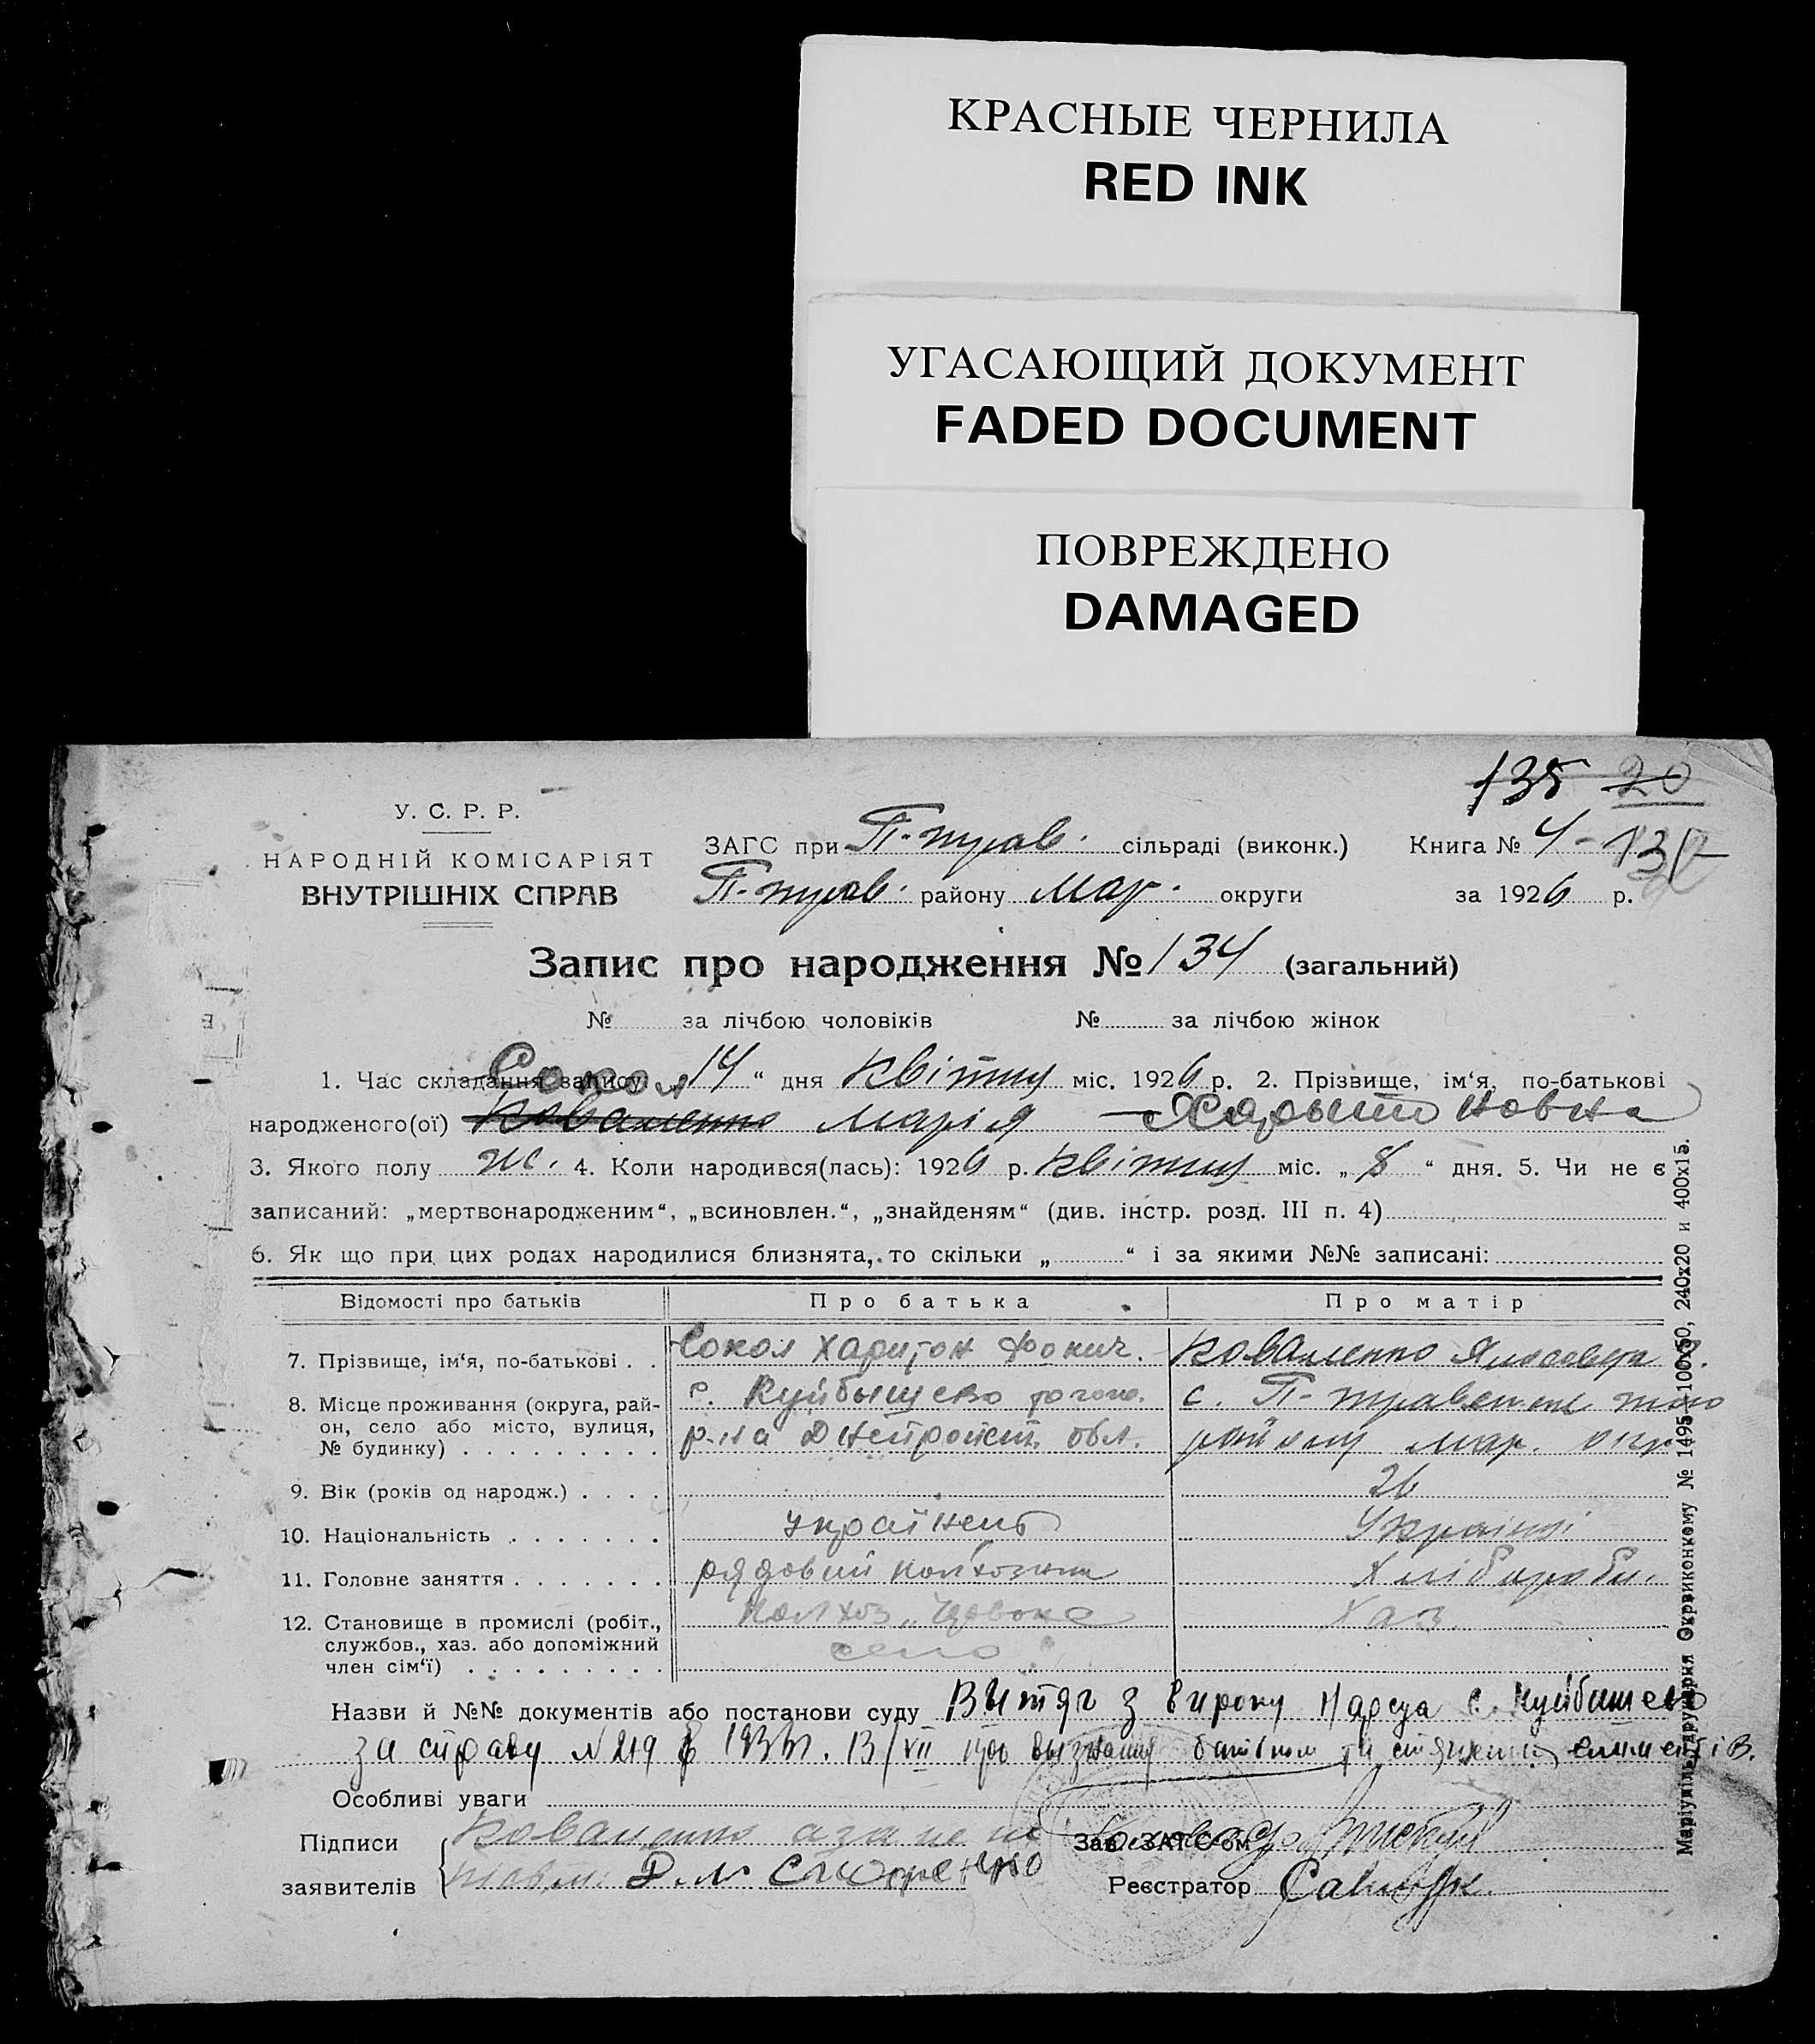 КРАСНЫЕ ЧЕРНИЛА
RED INK
УГАСАЮЩИЙ ДОКУМЕНТ
FADED DOCUMENT
ПОВРЕЖДЕНО
DAMAGED
135 20
У. С. Р. Р.
НАРОДНІЙ КОМІСАРІЯТ
ВНУТРІШНІХ СПРАВ
ЗАГС при П-трав. сільраді (виконк.) Книга № 4-
П-трав. району Мар. округи за 1926 р.
Запис про народження № 134 (загальний)
№ за лічбою чоловіків № за лічбою жінок
Сокол
1. Час складання запису: „14“ дня Квітну міс. 1926 р. 2. Прізвище, ім‘я, по-батькові
народженого(ої) Коваленко Марія Харытоновна
3. Якого полу ж. 4. Коли народився(лась): 1926 р. Квітну міс. „8“ дня. 5. Чи не є
записаний: „мертвонародженим“, „всиновлен.“, „знайденям“ (див. інстр. розд. III п. 4)
6. Як що при цих родах народилися близнята, то скільки „ “ і за якими №№ записані:
Відомості про батьків Про батька Про матір
7. Прізвище, ім‘я, по-батькові . . Сокол Харитон Фокич. Коваленко
8. Місце проживання (округа, рай-он, село або місто, вулиця, № будинку) с. Куйбышево
р-на Днепропет. обл.
с. П-
району мар. окр
9. Вік (років од народж.) 26
10. Національність українець Україн
11. Головне заняття рядовий колхозник Хлібороб
12. Становище в промислі (робіт., службов., хаз. або допоміжний член сім‘ї) Колхоз „Червоне
село“
Хаз.
Назви й №№ документів або постанови суду Вытяг з вироку Нарсуда с. Куйбишево
за справу №219 13/VII про вызнання батьком та стягнення елиментів.
Особливі уваги
Підписи заявителів Коваленко
Зав. ЗАГС‘ом
Реєстратор
Маріупіль, друкарня Окрвиконкому № 1495—100х50, 240х20 и 400х15.